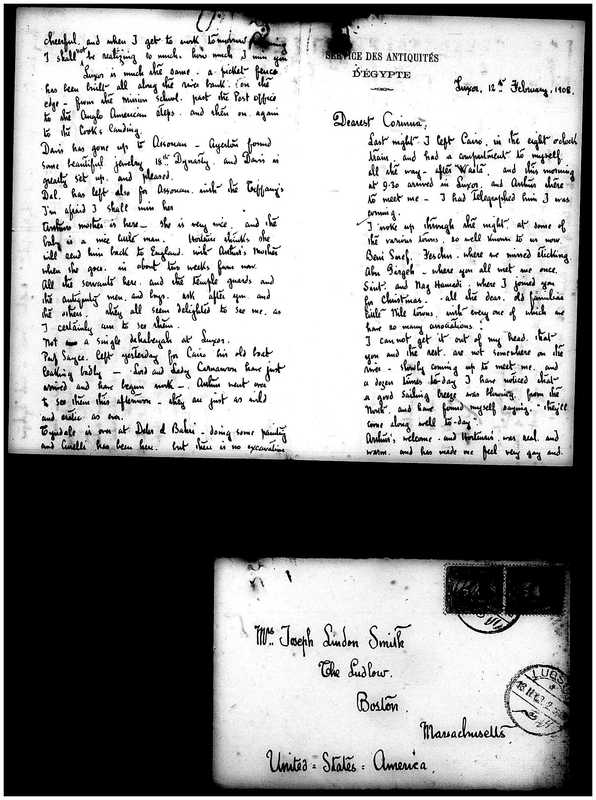 SERVICE DES ANTIQUITÉS
D'ÉGYPTE
Luxor, 12th February, 1908.
Dearest Corinna,
Last night I left Cairo, in the eight o'clock
train, and had a compartment to myself
all the way - after Wasta, and this morning
at 9.30 arrived in Luxor, and Arthur there
to meet me - I had Telegraphed him I was
coming.
I woke up through the night, at some of
the various towns, so well known to us now.
Beni Suef, Feschn, where we missed sticking,
Abu Girgeh - where you all met me once,
Siut, and Nag Hamadi where I joined you
for Christmas - all the dear, old familiar
little Nile towns, with every one of which we
have so many associations.
I can not get it out of my head, that
you and the rest, are not somewhere on the
river - slowly coming up to meet me, and
a dozen times to-day I have noticed that
a good sailing breeze was blowing, from the
North, and have found myself saying - they'll
come along well to-day.
Arthur's, welcome - and Hortense's was real, and
warm, and has made me feel very gay and
cheerful, and when I get to work tomorrow morning
I shall not be realizing so much, how much I miss you
Luxor is much the same - a picket fence
has been built all along the river bank, on the
edge - from the mission school, past the Post office
to the Anglo American steps - and then on, again
to the Cook's landing.
Davis has gone up to Assouan - Ayerton found
some beautiful jewelry 18th Dynasty and Davis is
greatly set up, and pleased.
Dal, has left also for Assouan, with the Tiffany's
I'm afraid I shall miss her
Arthurs mother is here - she is very nice, and the
baby is a nice little man. Hortense thinks she
will send him back to England, with Arthur's Mother
when she goes, in about two weeks from now.
All the servants here, and the temple guards and
the antiquity men, and boys, ask after you and
the others - they all seem delighted to see me, as
I certainly am to see them.
Not a single dahabeyah at Luxor.
Prof Sayce, left yesterday for Cairo his old boat
leaking badly - Lord and Lady Carnarvon have just
arrived and have begun work - Arthur went over
to see them this afternoon - they are just as wild
and erratic as ever.
Tyndale is over at Deher el Bahri - doing some painting
and Carelli has been here, but there is no excavation
Mrs. Joseph Lindon Smith
The Ludlow.
Boston
Massachusetts
United = States = America.